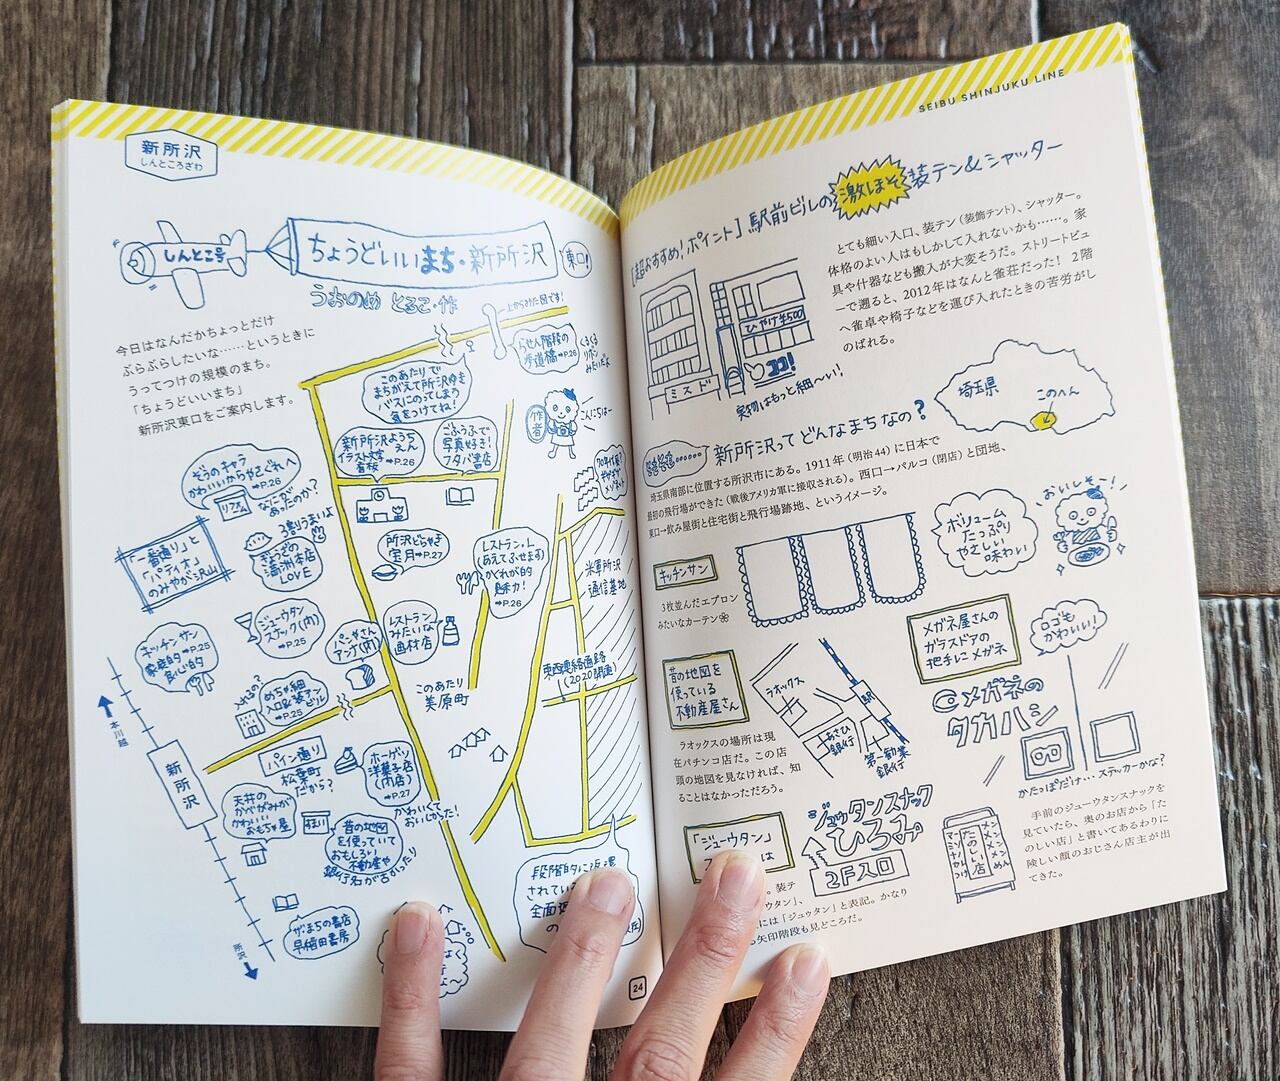 新所沢
しんところざわ
しんとこ号
ちょうどいいまち・新所沢
東口!
うおのめ とろこ・作
今日はなんだかちょっとだけ
ぶらぶらしたいな……というときに
うってつけの規模のまち。
「ちょうどいいまち」
新所沢東口をご案内します。
上からみた図です!
らせん階段の
歩道橋➡P.26
くるくる
リボン
みたいだよ
このあたりで
まちがえて所沢ゆき
バスにのってしまう
気をつけてね!
作者
こんにちはー
新所沢ようち
えん
イラスト文字
看板
➡P.26
ごふうふで
写真好き!
フタバ書店
ぞうのキャラ
かわいいからやさぐれへ
➡P.26
リフォーム
なにが
あったのか?
「一番通り」と
「パティオ」
のみやが沢山
3割うまいよ
ぎょうざの
満洲本店
LOVE
所沢どらやき
宝月➡P.27
レストラン・L
(あえてふせます)
かくれが的
魅力!
➡P.26
米軍所沢
通信基地
ジュータン
スナック(肉)
➡P.25
キッチンサン
家庭的➡P.25
良心的
パーやさん
アンナ(肉)
レストラン
みたいな
画材店
めちゃ細
入口&装テン
ビル
➡P.25
このあたり
美原町
東西連絡通路
(2020開通)
本川越
新所沢
所沢
パイン通り
松葉町
だから?
ホーゲツ
洋菓子店
(閉店)
➡P.27
かわいくて
おいしかった!
天井の
かざがみが
かわいい
おもちゃ屋
昔の地図
を使っていて
おもしろい
不動産や
銀行名が古かったり
ザ・まちの書店
早稲田書房
段階的に返還
24
SEIBU SHINJUKU LINE
[超おすすめ!ポイント]駅前ビルの激ほそ装テン&シャッター
とても細い入口、装テン(装飾テント)、シャッター。
体格のよい人はもしかして入れないかも……。家
具や什器なども搬入が大変そうだ。ストリートビュ
ーで遡ると、2012年はなんと雀荘だった! 2階
へ雀卓や椅子などを運び入れたときの苦労がし
のばれる。
ミスド
ひやけ¥500
ココ!
実物はもっと細〜い!
埼玉県
このへん
新所沢ってどんなまちなの?
埼玉県南部に位置する所沢市にある。1911年(明治44)に日本で
最初の飛行場ができた(戦後アメリカ軍に接収される)。西口→パルコ(閉店)と団地、
東口→飲み屋街と住宅街と飛行場跡地、というイメージ。
キッチンサン
3枚並んだエプロン
みたいなカーテン
ボリューム
たっぷり
やさしい
味わい
おいしそ〜!
昔の地図を
使っている
不動産屋さん
ラオックス
駅
あさひ
銀行
第一勧業
銀行
ラオックスの場所は現
在パチンコ店だ。この店
頭の地図を見なければ、知
ることはなかっただろう。
メガネ屋さんの
ガラスドアの
把手にメガネ
ロゴも
かわいい!
メガネの
タカハシ
かたっぽだけ…ステッカーかな?
「ジュウタン」
は
ジュウタンスナック
ひろみ
2F入口
装テ
には「ジュウタン」と表記。かなり
矢印階段も見どころだ。
たのしい店
手前のジュウタンスナックを
見ていたら、奥のお店から「た
のしい店」と書いてあるわりに
険しい顔のおじさん店主が出
てきた。